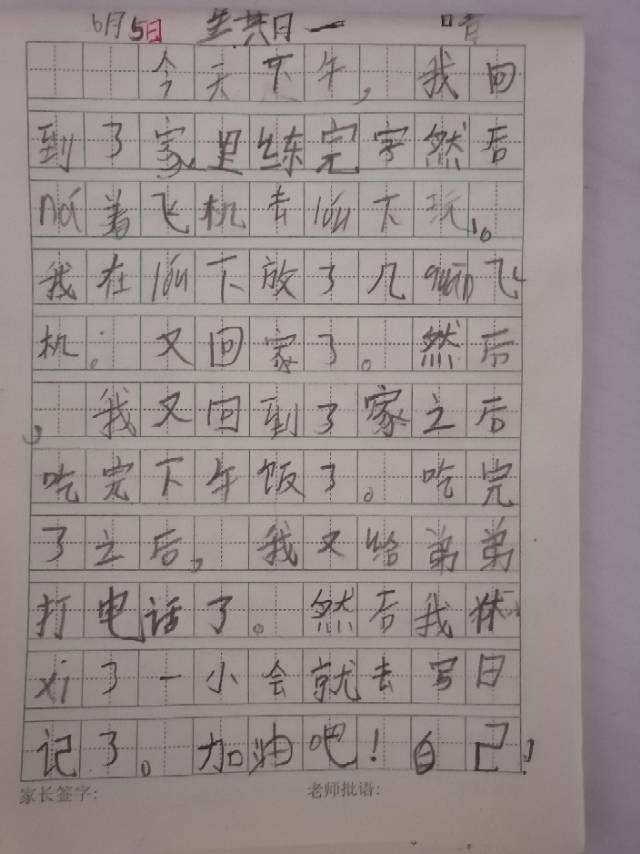 6月5日 星期一 晴
今天下午，我回
到了家里练完字然后
ná着飞机去lóu下玩。
我在lóu下放了几quān飞
机。又回家了。然后
，我又回到了家之后
吃完下午饭了。吃完
了之后，我又给弟弟
打电话了。然后我休
xi了一小会就去写日
记了。加油吧！自己！
家长签字： 老师批语：